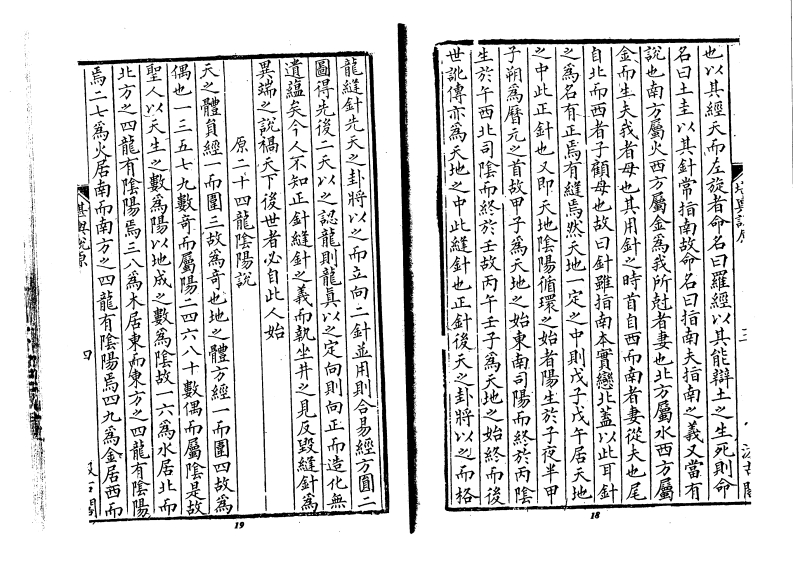 也以其經天而左旋者命名曰羅經以其能辯土之生死則命
名曰土圭以其針當指南故命名曰指南夫指南之義又當有
說也南方屬火西方屬金為我所尅者妻也北方屬水西方屬
金而生夫我者母也其用針之時首自西而南者妻從夫也尾
自北而西者子顧母也故曰針雖指南本實戀北蓋以此耳針
之為名有正焉有縫焉然天地一定之中則戊子戊午居天地
之中此正針也又即天地陰陽循環之始者陽生於子夜半甲
子朔為曆元之首故甲子為天地之始東南司陽而終於丙陰
生於午西北司陰而終於壬故丙午壬子為天地之始終而後
世訛傳亦為天地之中此縫針也正針後天之卦將以之而格
18
龍縫針先天之卦將以之而立向二針並用則合易經方圓二
圖得先後二天以之認龍則龍真以之定向則向正而造化無
遺蘊矣今人不知正針縫針之義而執坐井之見反毀縫針為
異端之說禍天下後世者必自此人始
原二十四龍陰陽說
天之體員經一而圍三故為奇也地之體方經一而圍四故為
偶也一三五七九數奇而屬陽二四六八十數偶而屬陰是故
聖人以天生之數為陽以地成之數為陰故一六為水居北而
北方之四龍有陰陽焉三八為木居東而東方之四龍有陰陽
焉二七為火居南而南方之四龍有陰陽焉四九為金居西而
四
19